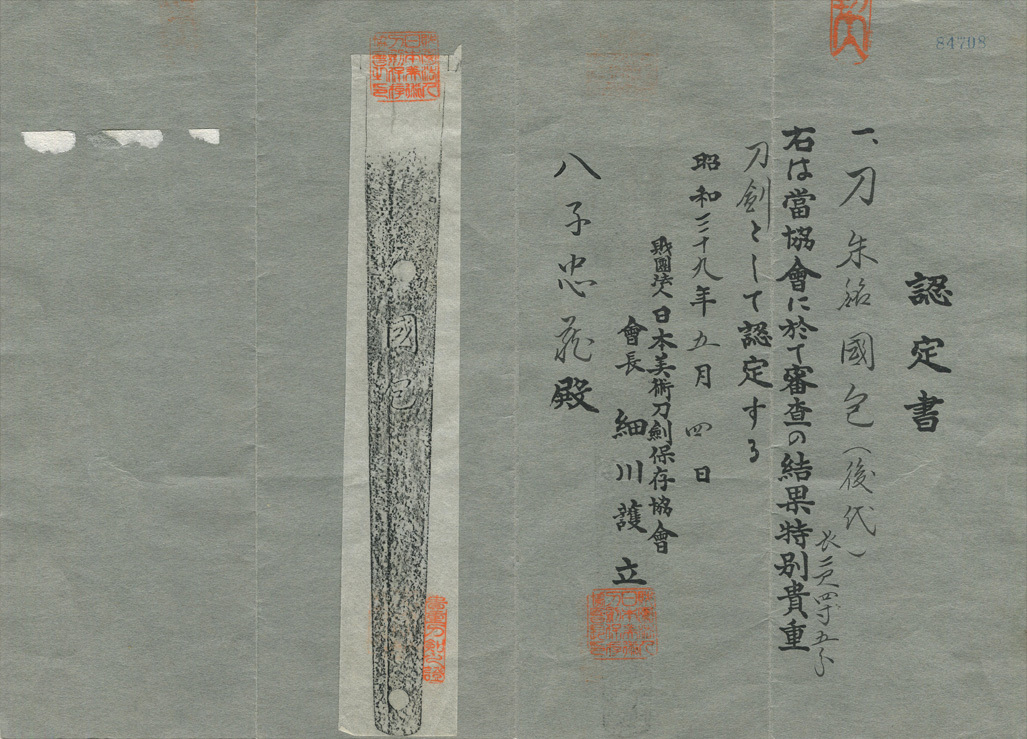 84708
認定書
一、刀 朱銘 國包(後代)
長二尺四寸五分
右は當協會に於て審査の結果特別貴重
刀劍として認定する
昭和三十九年五月四日
財團法人日本美術刀劍保存協會
會長 細川護立
八子忠茂殿
國包